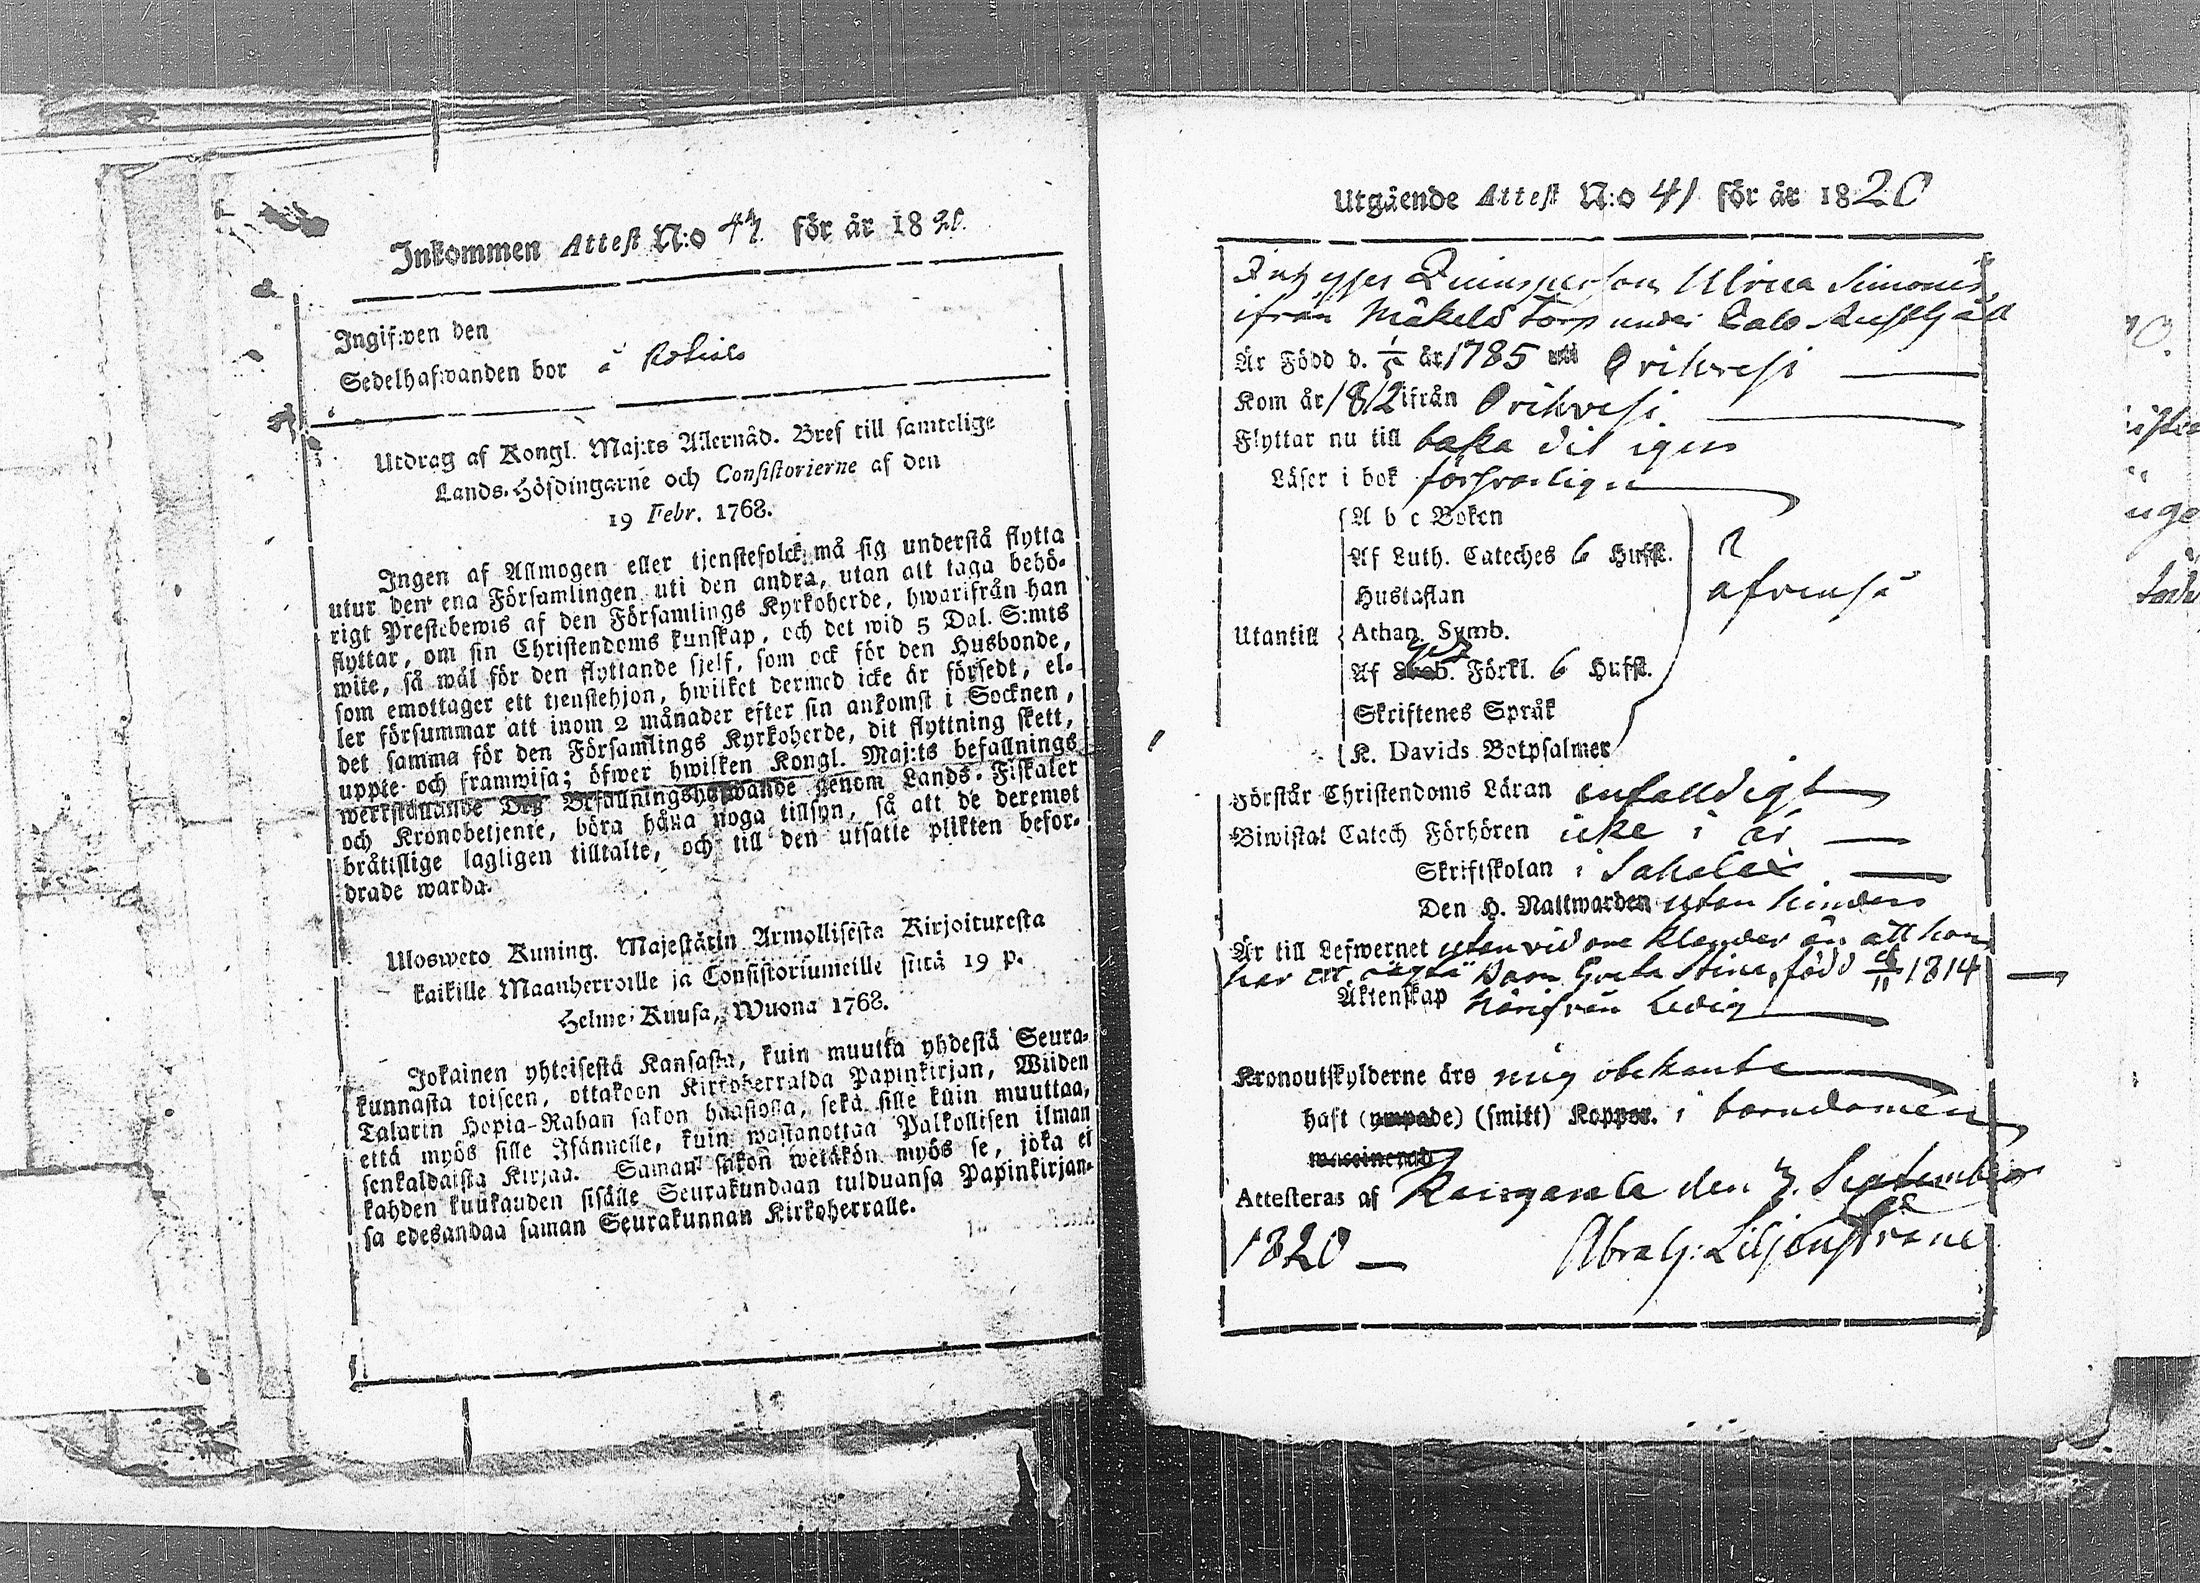 Inkommen Attest N:o 47. för år 1820.
Ingifwen den
Sedelhafwanden bor å
Utdrag af Kongl. Maj:ts Allernåd. Bref till samtelige
Lands-Höfdingarne och Consistorierne af den
19 Febr. 1768.
Ingen af Allmogen eller tjenstefolck må sig understå flytta
utur den ena Församlingen uti den andra, utan att taga behö-
rigt Prestebewis af den Församlings Kyrkoherde, hwarifrån han
flyttar, om sin Christendoms kunskap, och det wid 5 Dal. S:mts
wite, så wäl för den flyttande sjelf, som ock för den Husbonde,
som emottager ett tjenstehjon, hwilket dermed icke är försedt, el-
ler försummar att inom 2 månader efter sin ankomst i Socknen,
det samma för den Församlings Kyrkoherde, dit flyttning skett,
uppte och framwisa; öfwer hwilken Kongl. Maj:ts befallnings
werkställande Deß Befallningshafwande genom Lands-Fiskaler
och Kronobetjente, böra hålla noga tillsyn, så att de deremot
bråttslige lagligen tilltalte, och till den utsatte plikten befor-
drade warda.
Ulosweto Kuning. Majestätin Armollisesta Kirjoituxesta
kaikille Maanherroille ja Consistoriumeille siitä 19 p.
Helme-Kuusa, Wuona 1768.
Jokainen yhteisestä Kansasta, kuin muutta yhdestä Seura-
kunnasta toiseen, ottakoon Kirkoherralda Papinkirjan, Wiiden
Talarin Hopia-Rahan sakon haastolla, sekä sille kuin muuttaa,
että myös sille Isännelle, kuin wastanottaa Palkollisen ilman
senkaldaista Kirjaa. Saman sakon wetäkön myös se, joka ei
kahden kuukauden sisälle Seurakundaan tulduansa Papinkirjan-
sa edesandaa saman Seurakunnan Kirkoherralle.
Utgående Attest N:o 41 för år 1820
Qvinsperson Ulrica Simonis
ifrån Mäkelä Torp under
Är Född d. 1/5 år 1785 Orihvesi
Kom år 1812 ifrån Orihvesi
Flyttar nu till baka dit igen
Läser i bok försvarligen
A b c Boken
Af Luth. Cateches 6 Hufst.
Hustaflan
Utantill
Athan. Symb.
Af Förkl. 6 Hufst.
Skriftenes Språk
K. Davids Botpsalmer
Förstår Christendoms Läran enfalldigt
Biwistat Catech Förhören icke i år
Skriftskolan i
Den H. Nattwarden utan hinder
Är till Lefwernet utan vidare klander än att hon
har ett oägta Barn Greta Stina, född 1814
Äktenskap härifrån ledig
Kronoutskylderne äro mig obekante
haft (ympade) (smitt) Koppor. i barndomen
vaccinerad
Attesteras af Kangasala den 7. September
1820 Abrah: Liljenstrand